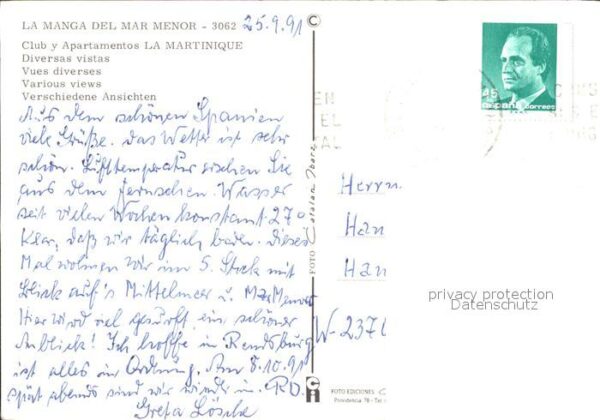 LA MANGA DEL MAR MENOR - 3062 25.9.91
Club y Apartamentos LA MARTINIQUE
Diversas vistas
Vues diverses
Various views
Verschiedene Ansichten
Aus dem schönen Spanien
viele Grüße. Das Wetter ist sehr
schön. Lufttemperatur ersehen Sie
aus dem Fernsehen. Wasser
seit vielen Wochen konstant 27°
Klar, daß wir täglich baden. Dieses
Mal wohnen wir im 5. Stock mit
Blick auf's Mittelmeer u. Mar Menor
Hier wird viel gesurft, ein schöner
Anblick! Ich hoffe in Rendsburg
ist alles in Ordnung. Am 8.10.91
spät abends sind wir wieder in RD.
Greta
FOTO
45
españa correos
Herrn
Han
Han
W-2370
privacy protection
Datenschutz
FOTO EDICIONES
Providencia, 78